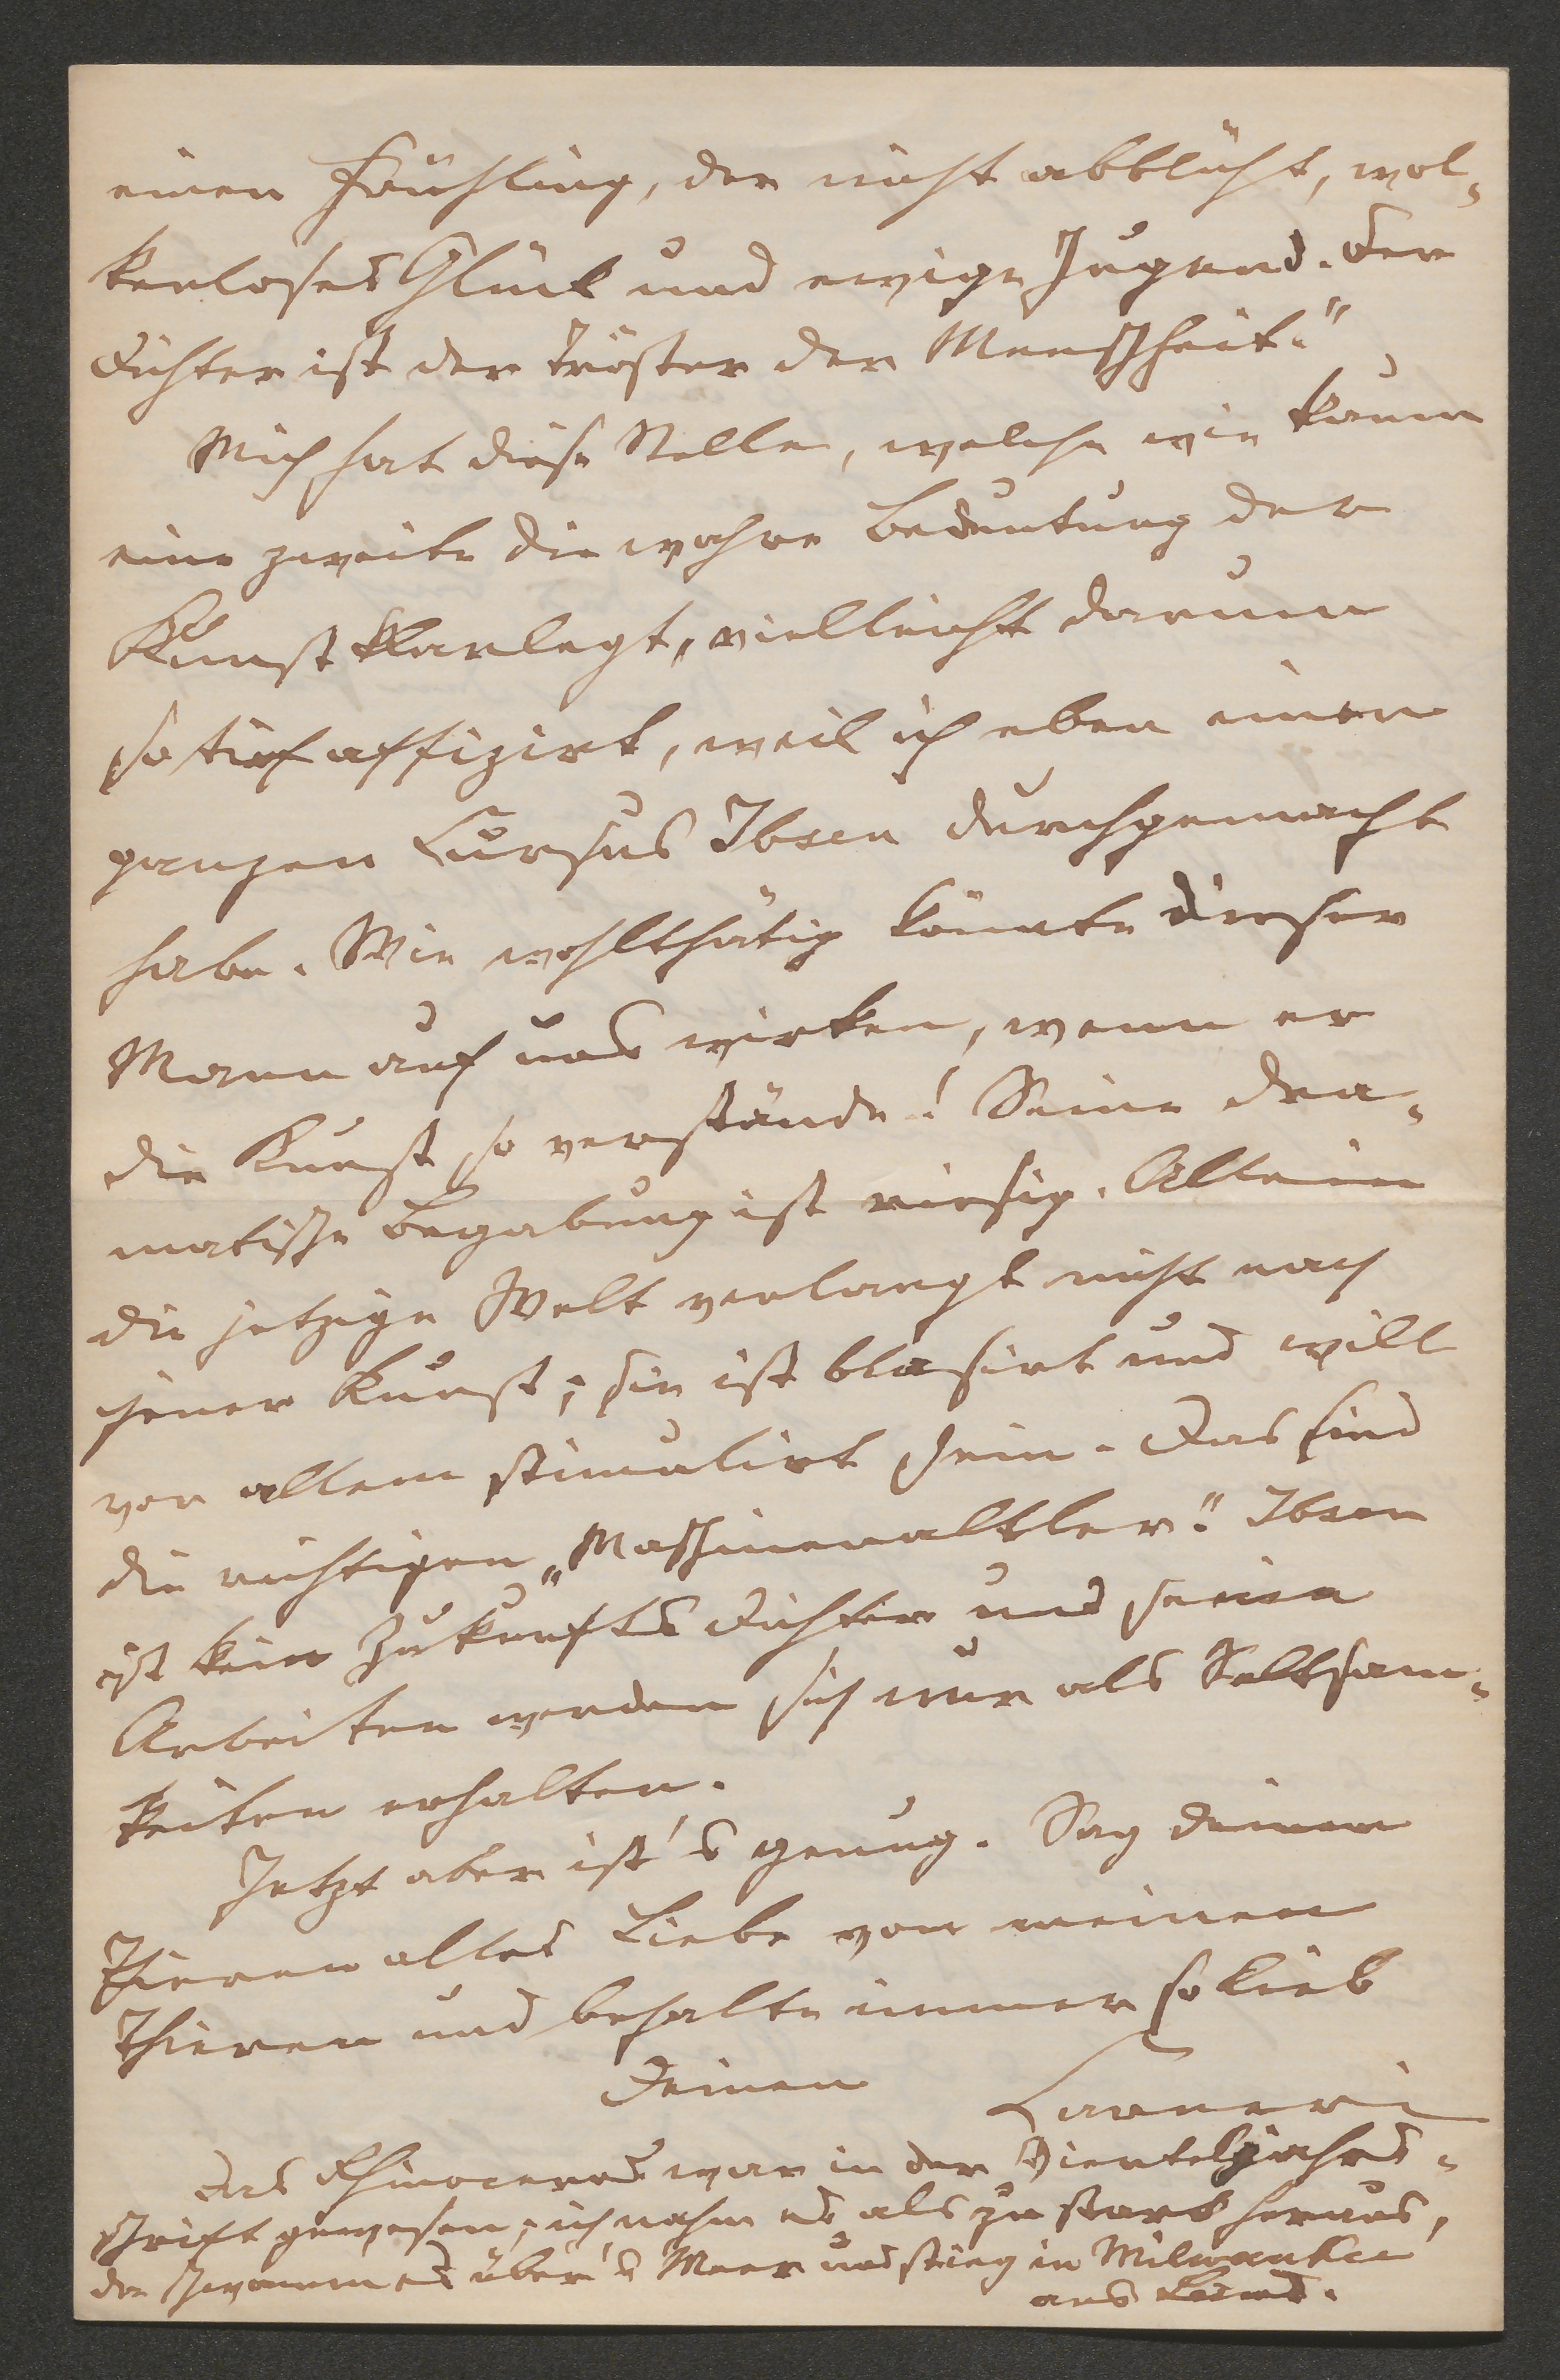 einen Frühling, der nicht abblüht, wol-
kenloses Glück und ewige Jugend. Der
Dichter ist der Tröster der Menschheit."
Mich hat diese Stelle, welche wie kaum
eine zweite die wahre Bedeutung der
Kunst klarlegt, vielleicht darum
so tief affizirt, weil ich eben einen
ganzen Cursus Ibsen durchgemacht
habe. Wie wohlthätig könnte dieser
Mann auf uns wirken, wenn er
die Kunst so verstände! Seine dra-
matische Begabung ist riesig. Allein
die jetzige Welt verlangt nicht nach
jener Kunst; sie ist blasirt und will
vor allem stimulirt sein. Das sind
die richtigen „Maschinenaltler". Ibsen
ist kein Zukunftsdichter und seine
Arbeiten werden sich nur als Seltsam-
keiten erhalten.
Jetzt aber ist's genug. Sag deinen
Thieren alles Liebe von meinen
Thieren und behalte immer so lieb
Deinen
Carneri
Das Rhinoceros war in der Vierteljahrs-
schrift gewesen; ich nahm es als zu stark heraus,
da schwamm es über's Meer und stieg in Milwaukee
ans Land.